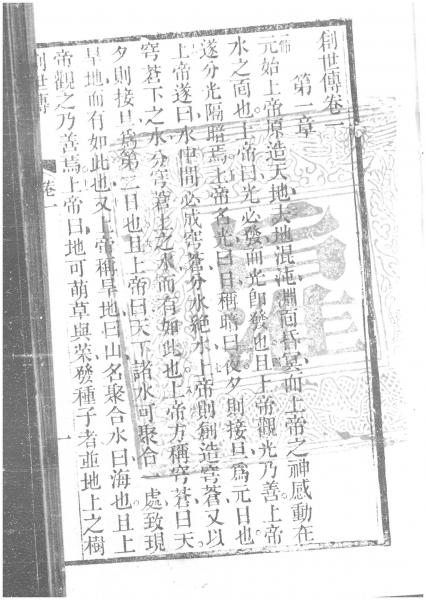 創世傳卷一
第一章
元始上帝原造天地夫地混沌淵面昏冥而上帝之神感動在
水之面也上帝曰光必發而光卽發也且上帝觀光乃善上帝
遂分光隔暗焉上帝名光曰日稱暗曰夜夕則接旦爲元日也
上帝遂曰水中間必成穹蒼分水絕水上帝則創造穹蒼又以
穹蒼下之水分穹蒼上之水而有如此也上帝方稱穹蒼曰天
夕則接旦爲第二日也且上帝曰天下諸水可聚合一處致現
旱地而有如此也又上帝稱旱地曰山名聚合水曰海也且上
帝觀之乃善焉上帝曰地可萌草與菜發種子者並地上之樹
創世傳 卷一 一